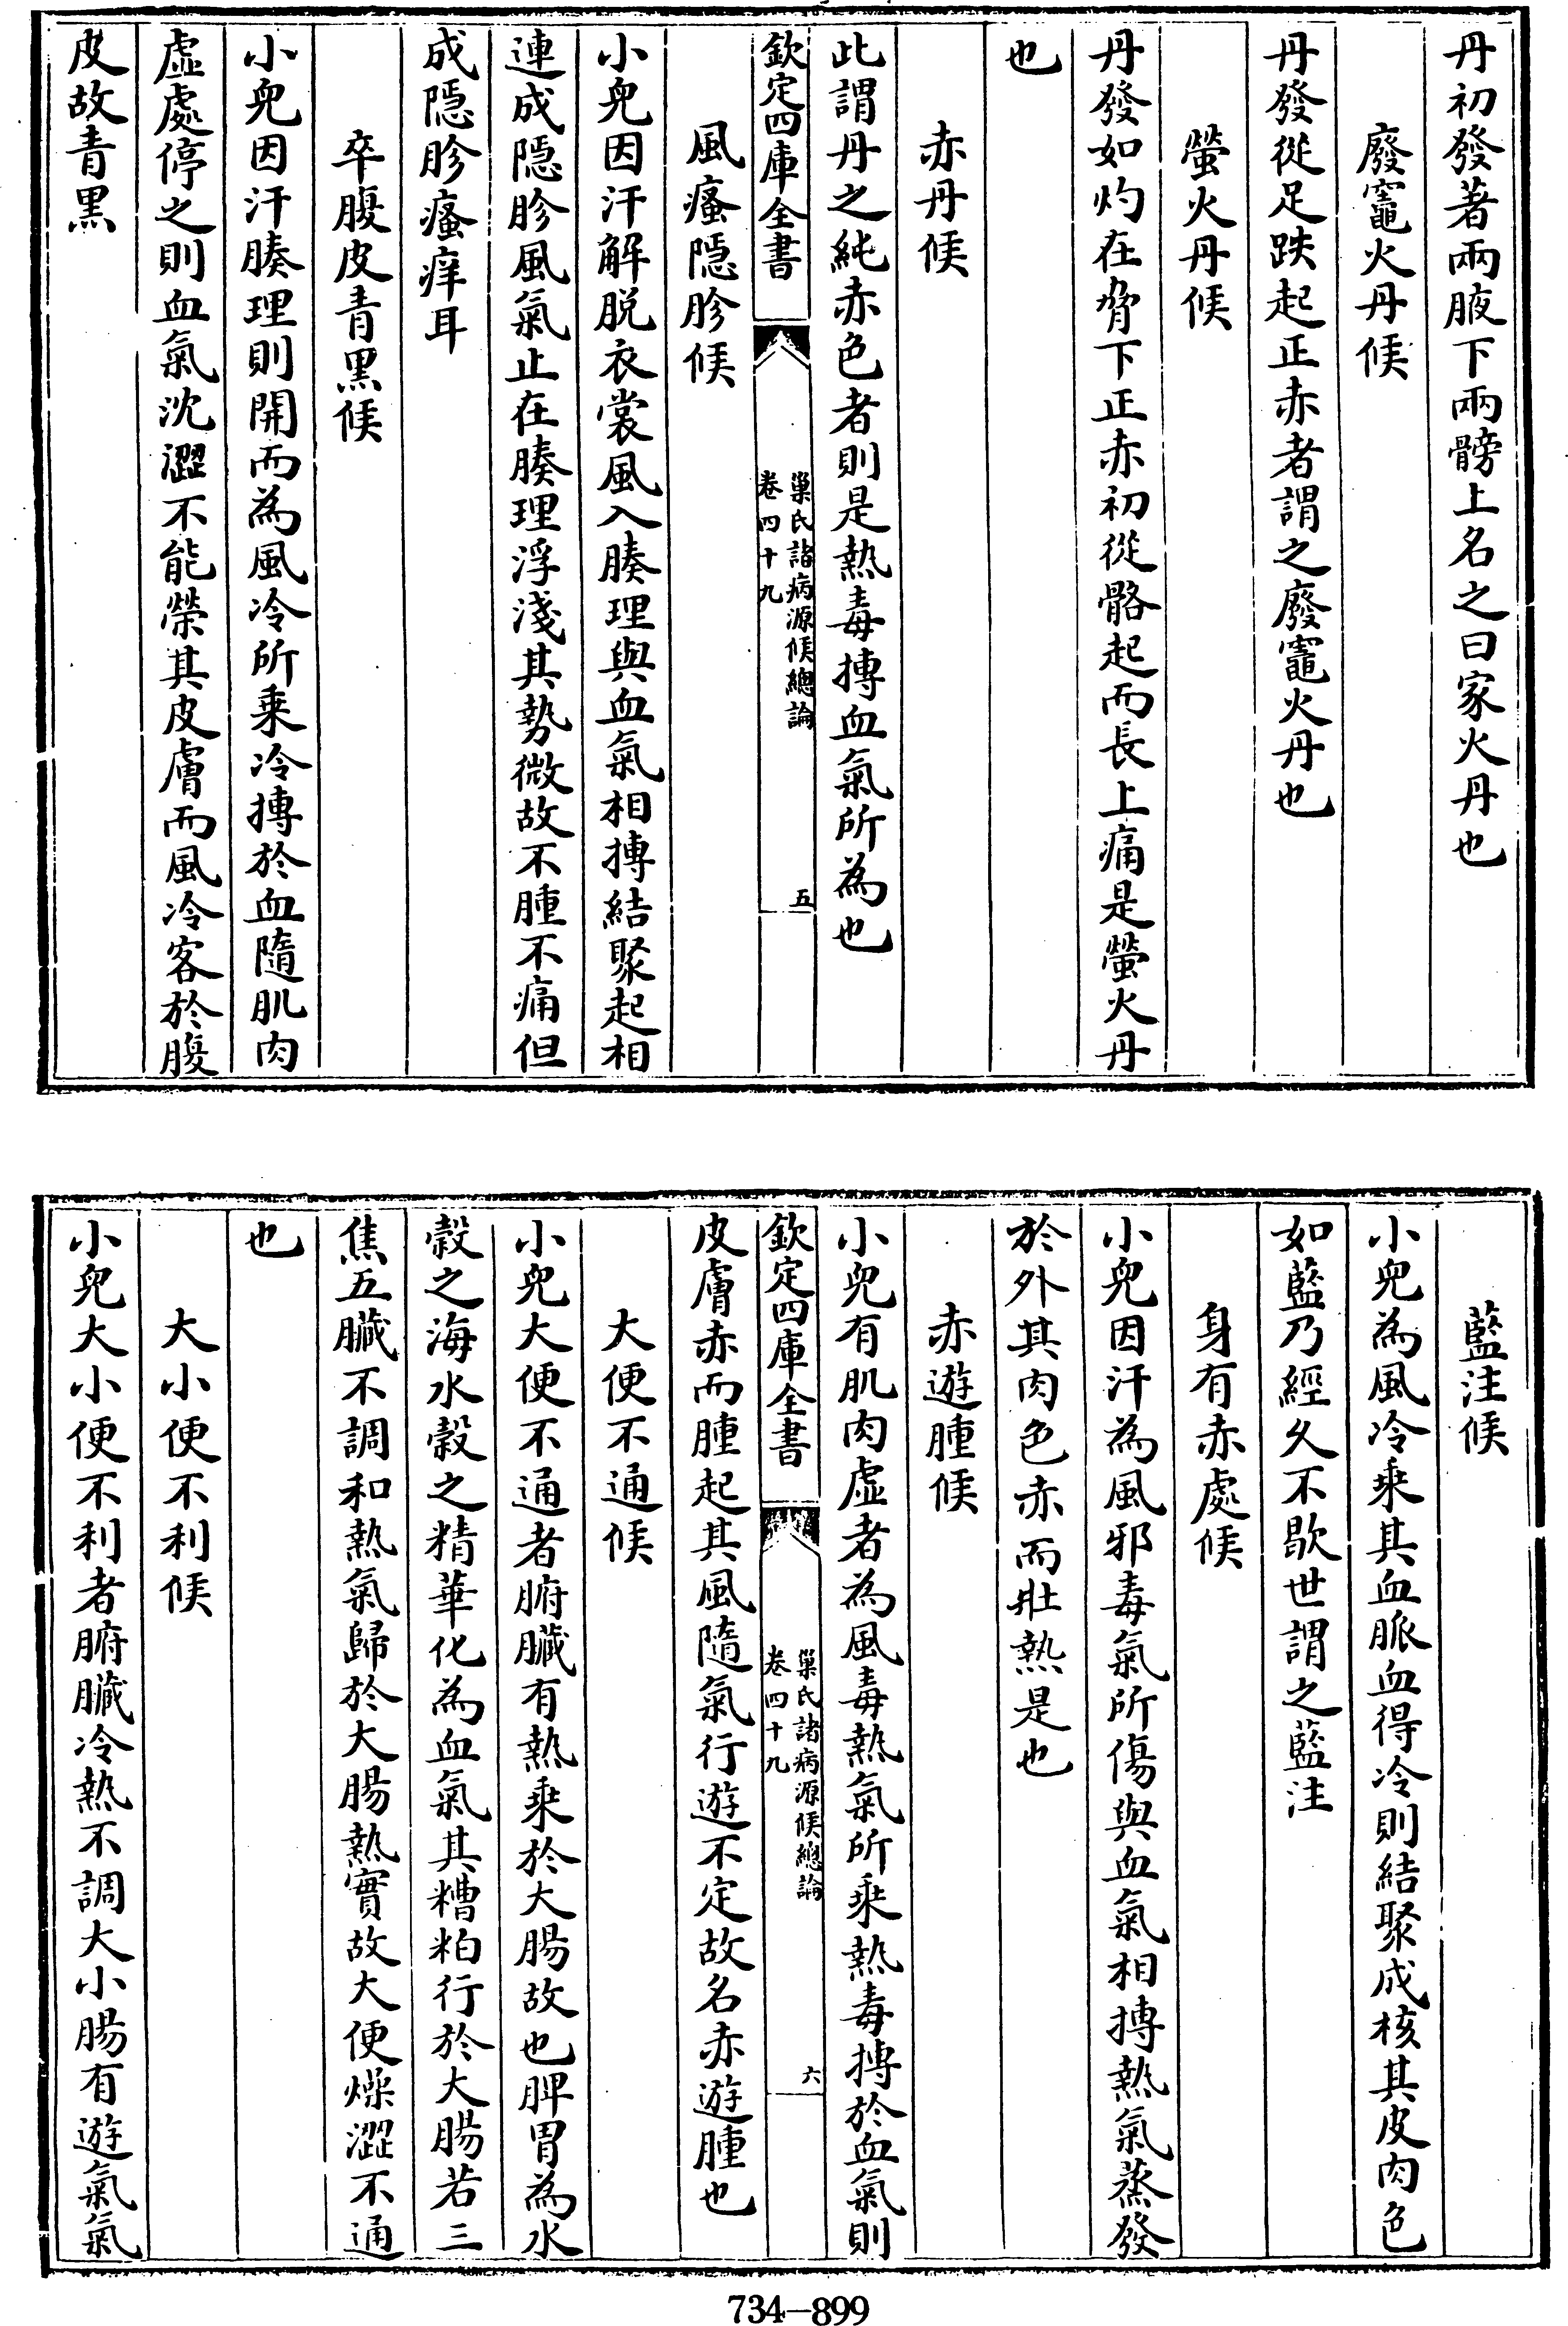 丹初發著兩腋下兩髈上名之曰家火丹也
廢竈火丹候
丹發從足趺起正赤者謂之廢竈火丹也
螢火丹候
丹發如灼在脅下正赤初從骼起而長上痛是螢火丹
也
赤丹候
此謂丹之純赤色者則是熱毒搏血氣所為也
欽定四庫全書
巢氏諸病源候總論
卷四十九
五
風瘙隱胗候
小兒因汗解脫衣裳風入腠理與血氣相搏結聚起相
連成隱胗風氣止在腠理浮淺其勢微故不腫不痛但
成隱胗瘙痒耳
卒腹皮青黑候
小兒因汗腠理則開而為風冷所乗冷搏於血隨肌肉
虛處停之則血氣沈澀不能榮其皮膚而風冷客於腹
皮故青黑
藍注候
小兒為風冷乗其血脈血得冷則結聚成核其皮肉色
如藍乃經久不歇世謂之藍注
身有赤處候
小兒因汗為風邪毒氣所傷與血氣相搏熱氣蒸發
於外其肉色赤而壯熱是也
赤遊腫候
小兒有肌肉虛者為風毒熱氣所乗熱毒搏於血氣則
欽定四庫全書
巢氏諸病源候總論
卷四十九
六
皮膚赤而腫起其風隨氣行遊不定故名赤遊腫也
大便不通候
小兒大便不通者腑臟有熱乗於大腸故也脾胃為水
穀之海水穀之精華化為血氣其糟粕行於大腸若三
焦五臟不調和熱氣歸於大腸熱實故大便燥澀不通
也
大小便不利候
小兒大小便不利者腑臟冷熱不調大小腸有遊氣氣
734-899